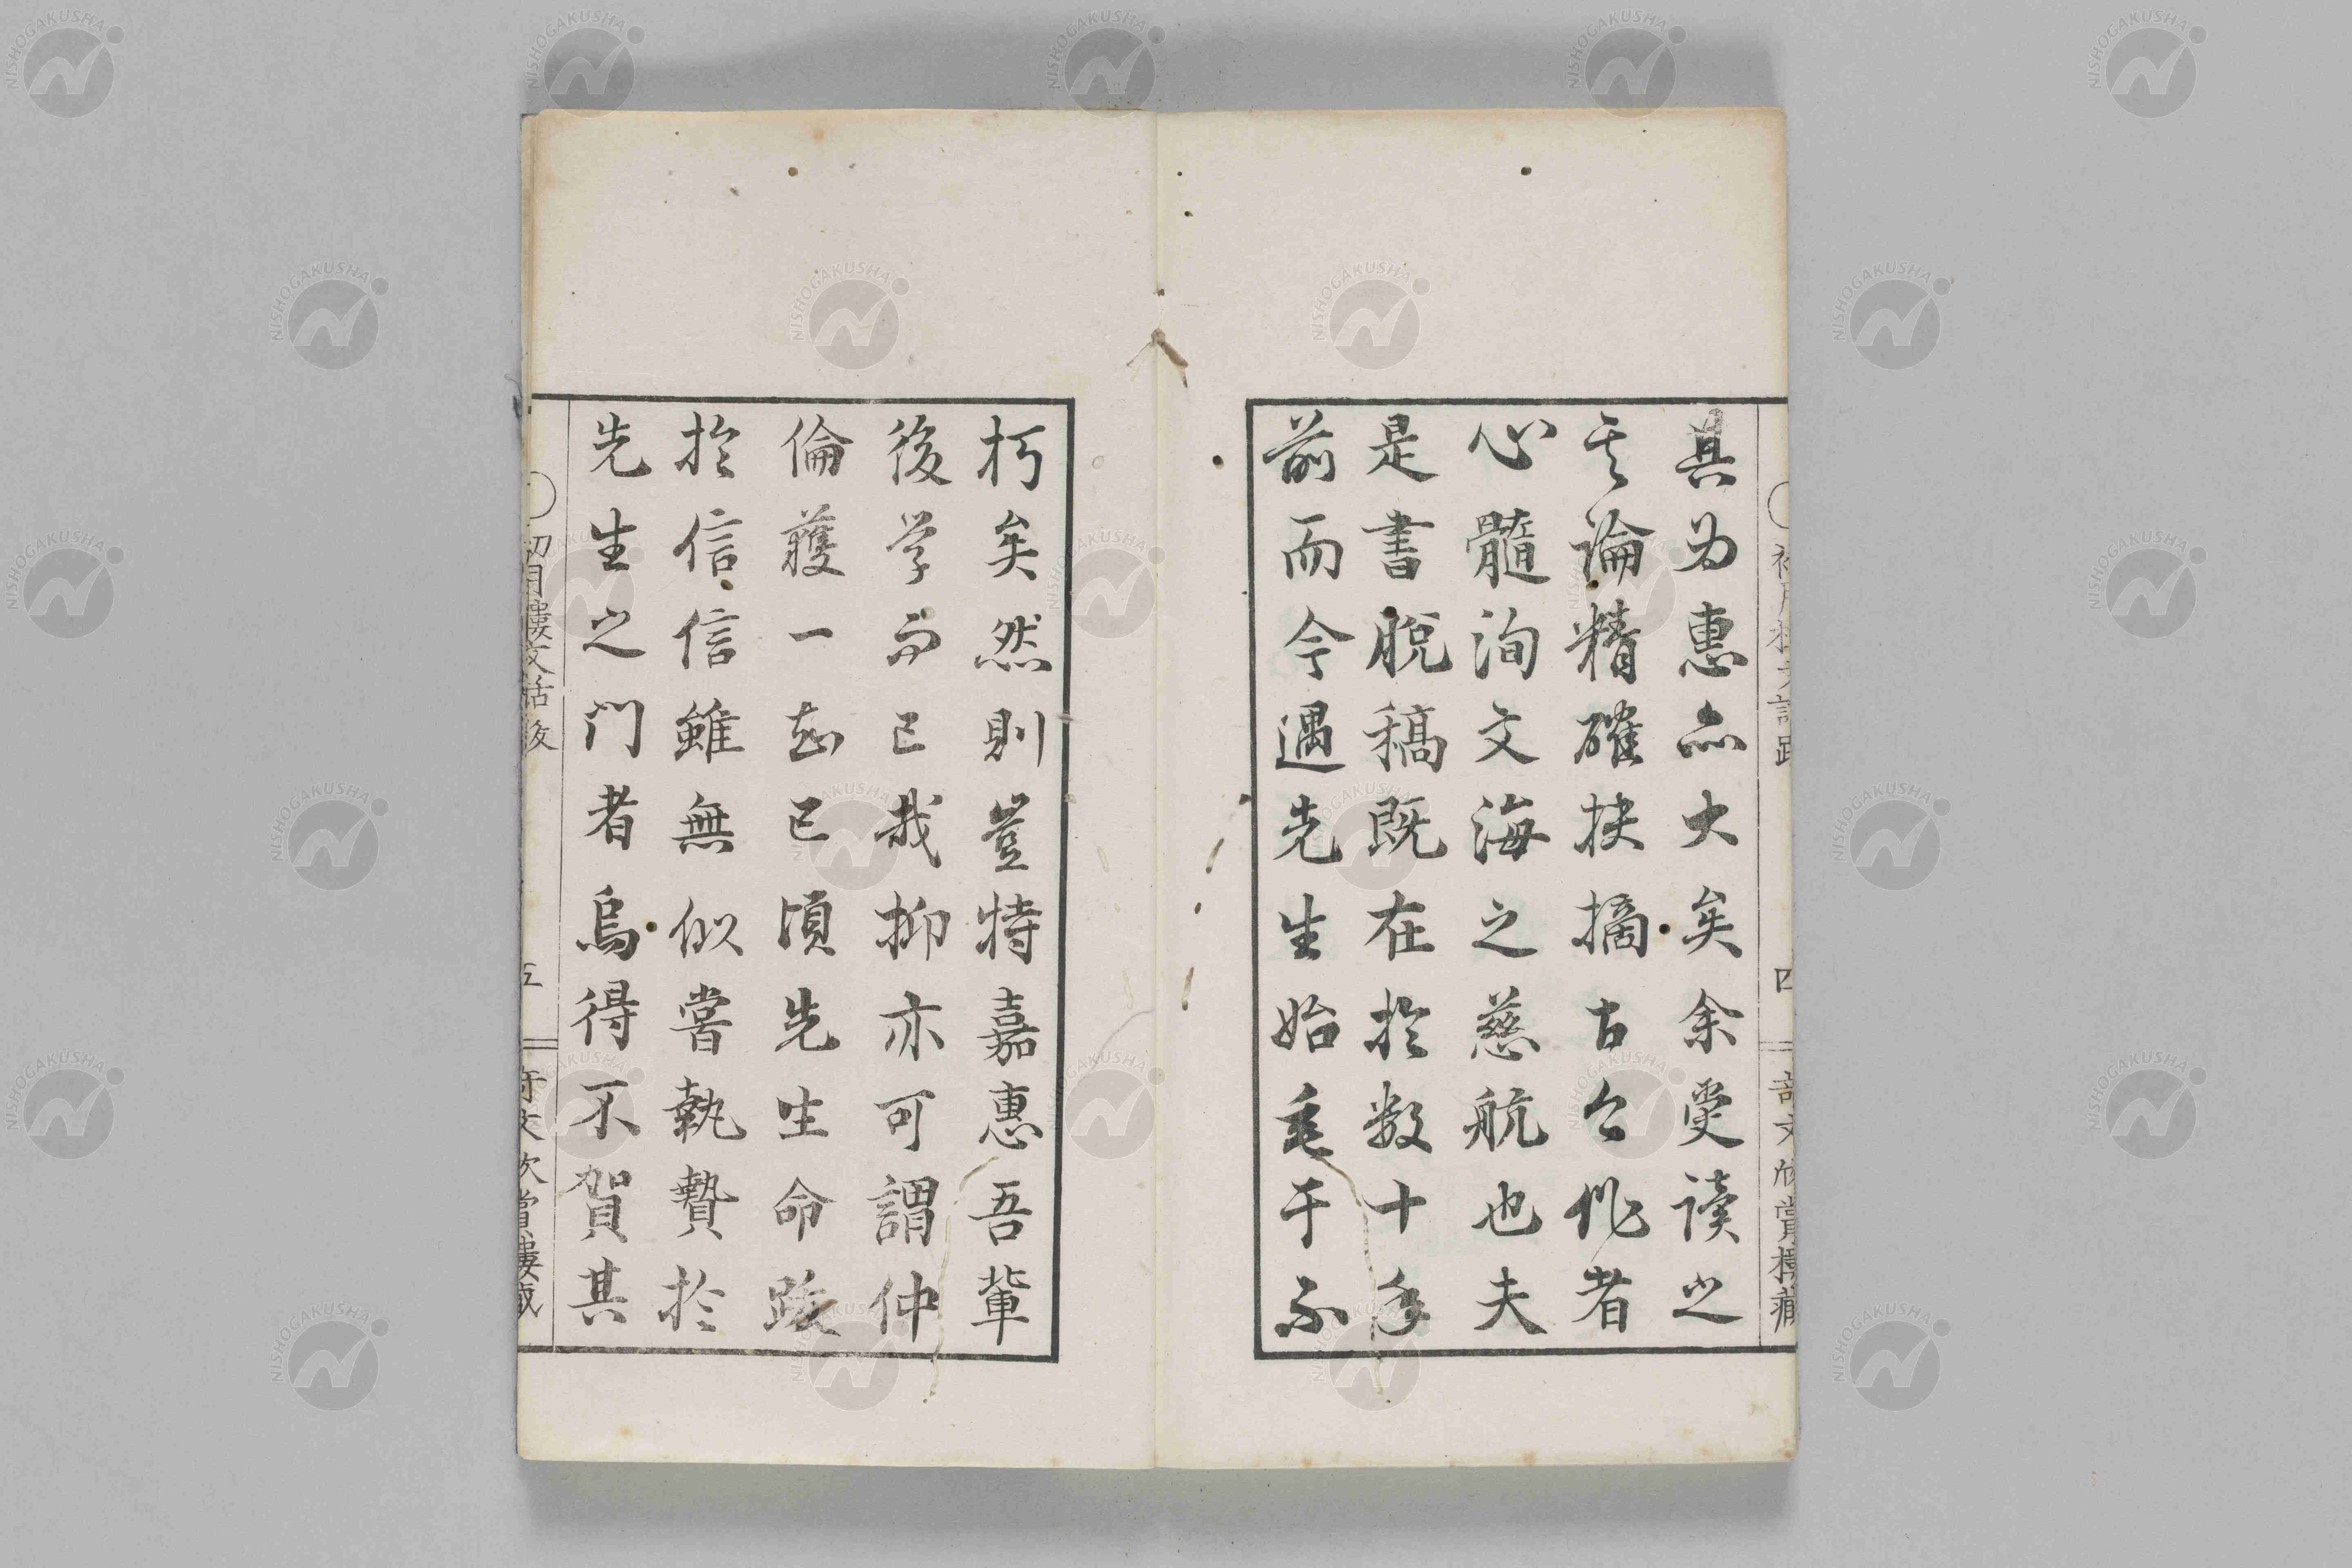 具为惠亦大矣余受读之
其論精確抉摘古今作者
心髓洵文海之慈航也夫
是書脫稿既在於数十年
前而今遇先生始垂于不
朽矣然則豈特嘉惠吾輩
後学而已哉抑亦可謂仲
倫獲一知己頃先生命跋
於信信雖無似嘗執贄於
先生之門者烏得不賀其
初月樓文話後
五
奇文欣賞樓藏
四
奇文欣賞樓藏
NISHOGAKUSHA